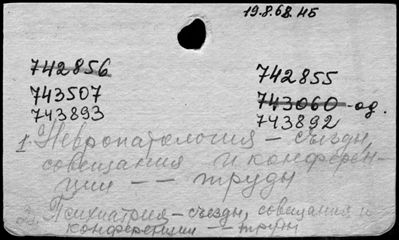 19.8.68. НБ
742856 742855
743507 743060 - од.
743893 743892
1. Невропатология – съезды,
совещания и конферен-
ции — труды
2. Психиатрия – съезды, совещания и
конференции — труды